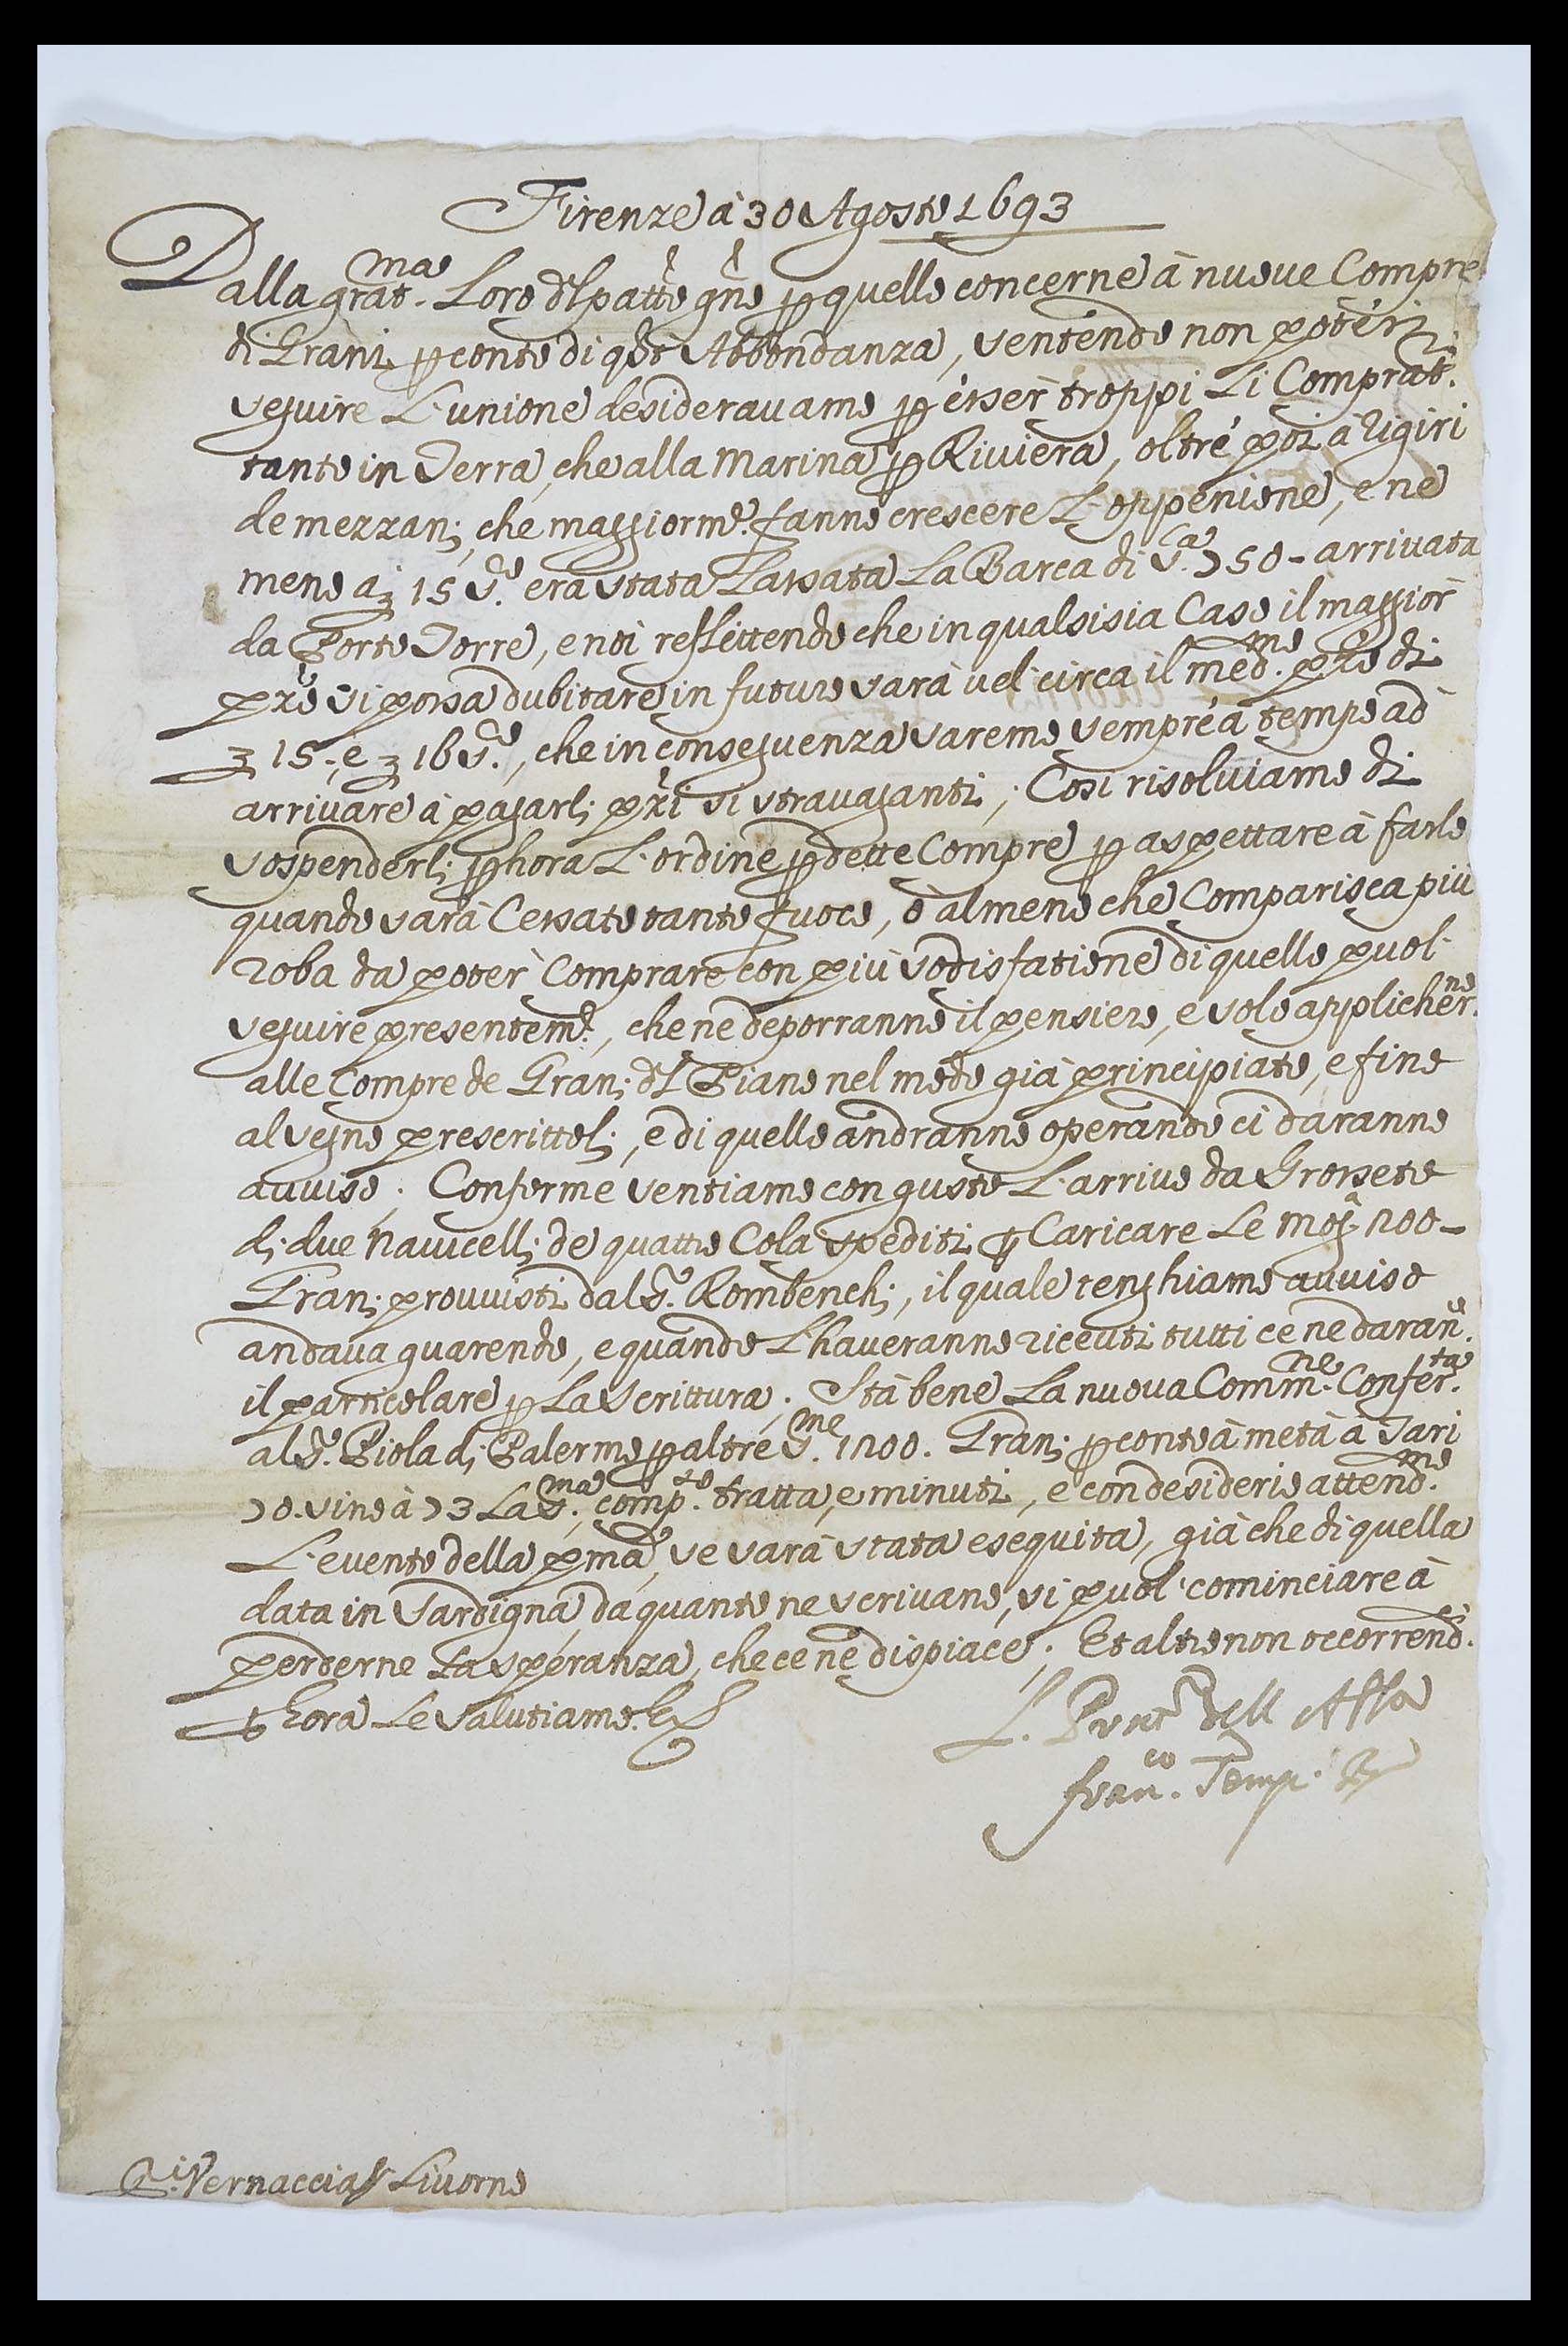 Firenze à 30 Agosto 1693
Dalla grat.ma Loro dl patto gno p quello concerne à nuove Compre
di Grani p conto di qta Abbondanza, sentendo non poteri
seguire L'unione desideravamo p esser troppi Li Comprat.ri
tanto in Terra, che alla Marina p Riviera, oltre poi à rigiri
de mezzani, che maggiorm.e fanno crescere L'oppenione, e ne
meno a 15 s.o era stata Lassata La Barca di s.a 750 - arrivata
da Porto Torre, e noi reflettendo che in qualsisia Caso il maggior
przo si possa dubitare in futuro sarà nel circa il med.mo przo di
15, e 16 s.o, che in conseguenza saremo sempre à tempo ad
arrivare à pagarli przi si stravaganti; Così risolviamo di
sospenderli p hora L'ordine p dette Compre p aspettare à farlo
quando sarà Cessato tanto fuoco, ò almeno che Comparisca più
roba da poter Comprare con più sodisfatione di quello puol'
seguire presentem.e, che ne deporranno il pensiero, e solo applicher.no
alle Compre de Grani dl Piano nel modo già principiato, e fino
al segno prescrittoli, e di quello andranno operando ci daranno
avviso; Conforme sentiamo con gusto L'arrivo da Grosseto
di due Navicelli de quattro Cola spediti p Caricare Le moj 200 -
Grani provvisti dal S.r Rombenchi, il quale tenghiamo avviso
andava guarendo, e quando L'haveranno riceuti tutti ce ne daran.o
il particolare p La Scrittura; Stà bene La nuova Comm.ne Confer.ta
al S.r Piola di Palermo p altre S.me 1200. Grani p conto à metà à Tari
70. sino à 73 La S.ma, comp.so tratta, e minuti, e con desiderio attend.mo
L'evento della pma, se sarà stata eseguita, già che di quella
data in Sardigna, da quanto ne scrivano, si puol' cominciare à
perderne La speranza, che ce ne dispiace; Et altro non occorrend.o
p hora Le Salutiamo.
Fran.co Temp.
Ri Vernaccia Livorno